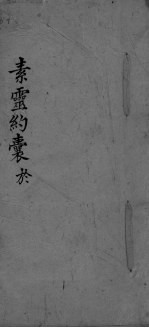 素靈約囊 於